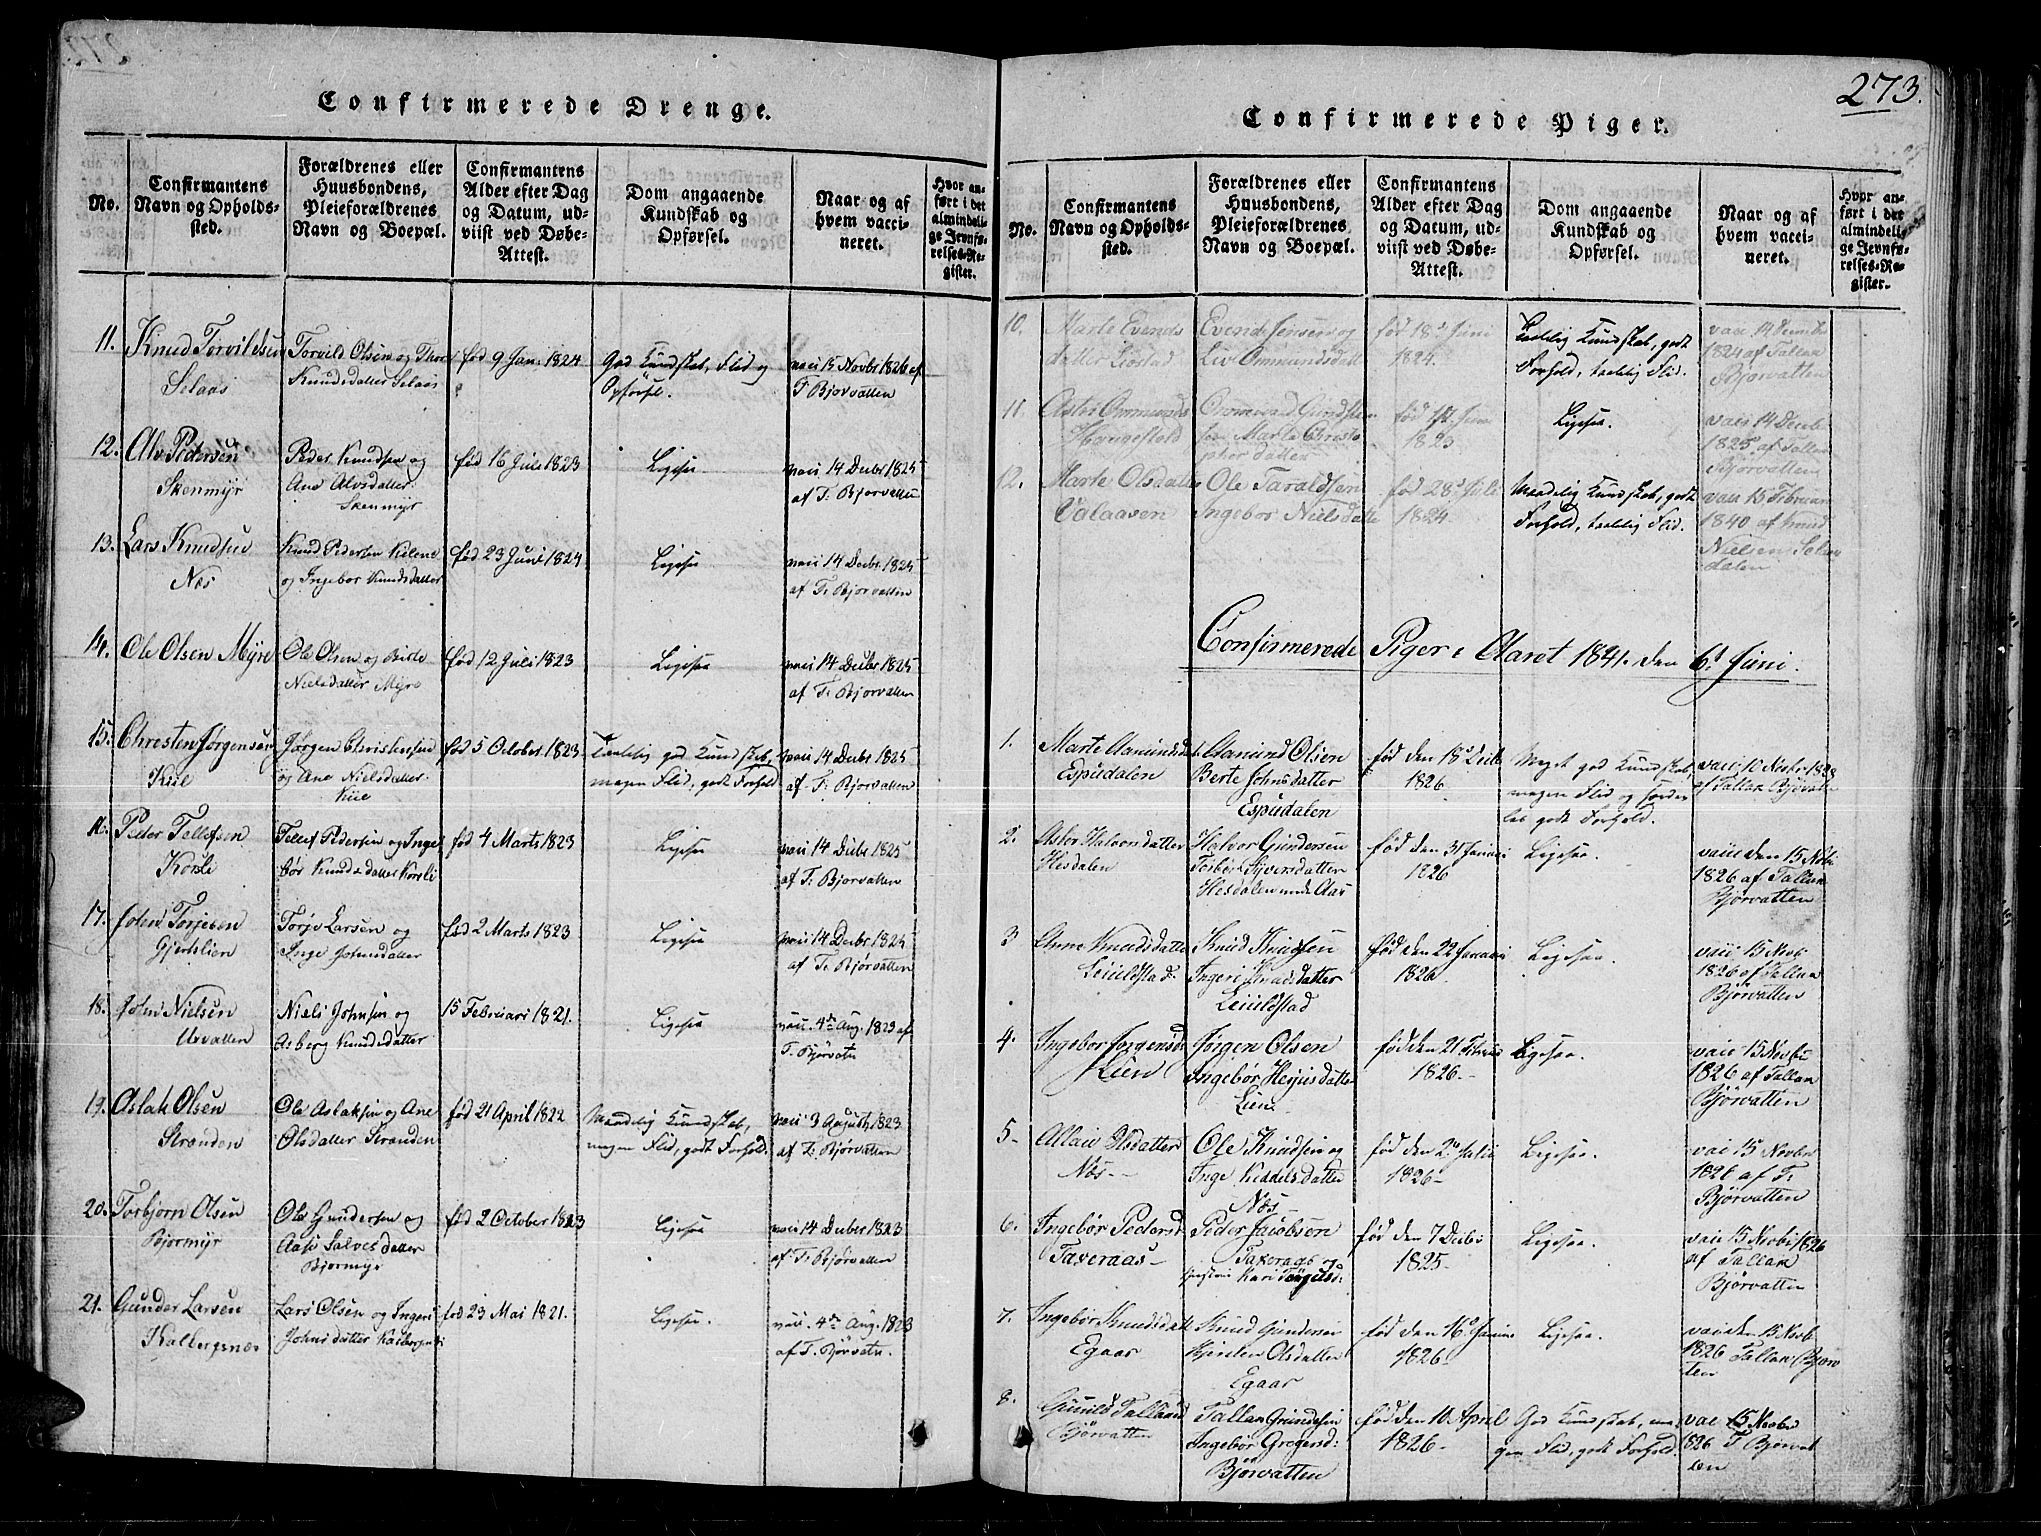 Confirmerede Drenge.
No.
Confirmantens
Navn og Opholds-
sted.
Forældrenes eller
Huusbondens,
Pleieforældrenes
Navn og Boepæl.
Confirmantens
Alder efter Dag
og Datum, ud-
viist ved Døbe-
Attest.
Dom angaaende
Kundskab og
Opførsel.
Naar og af
hvem vacci-
neret.
Hvor an-
ført i det
almindeli-
ge Jevnfø-
relses-Re-
gister.
11. Knud Torvildsen
Selaas
Torvild Olsen og Thore
Knudsdatter Selaas
fød 9 Jan. 1824
God Kundskab, Flid og
Opførsel.
vacc 15 Novbr 1826 af
T Bjorvatten
12. Alv Pedersen
Skenmyr
Peder Knudsen og
Ane Alvsdatter
Skenmyr
fød 16 Juli 1823
Ligesaa
vacc 14 Decbr 1825
af T: Bjorvatten
13. Lars Knudsen
Næs
Knud Pedersen Kilene
og Ingebor Knudsdatter
fød 23 Juni 1824
Ligesaa
vacc 14 Decbr. 1825
af T: Bjorvatten
14. Ole Olsen Myre
Ole Olsen og Birte
Nielsdatter Myre
fød 12 Juli 1823
Ligesaa
vacc 14 Decbr 1825
af T: Bjorvatten
15. Christen Jørgensen
Kiil
Jørgen Christensen
og Ane Nielsdatter
Kiie
fød 5 October 1823
Taalelig god Kundskab,
megen Flid, godt Forhold
vacc 14 Decbr 1825
af T: Bjorvatten
16. Peder Tellefsen
Korsli
Tellef Pedersen og Inge
bør Knudsdatter Korsli
fød 4 Marts 1823
Ligesaa
vacc 14 Decbr 1825
af T: Bjorvatten
17. John Torjesen
Gjertslien
Torje Larsen og
Inge Johnsdatter
fød 2 Marts 1823
Ligesaa
vacc 14 Decbr 1825
af T: Bjørvatten
18. John Nielsen
Urvatten
Niels Johnsen og
Asberg Knudsdatter
15 Februari 1821.
Ligesaa
vacc. 4de Aug. 1823 af
T. Bjørvatn
19. Aslak Olsen
Stranden
Ole Aslaksen og Ane
Olsdatter Stranden
fød 21 April 1822
Maadelig Kundskab,
megen Flid, godt Forhold.
vacc 3 Augusth 1823
af T: Bjørvatten
20. Torbjorn Olsen
Bjormyr
Ole Gundersen og
Aase Salvesdatter
Bjormyr
fød 2 October 1823
Ligesaa
vacc 14 Decber 1823
af T: Bjørvatten
21. Gunder Larsen
Kalbergsnæs
Lars Olsen og Ingeri
Johnsdatter Kalbergsnæs
fød 23 Mai 1821.
Ligesaa.
vacc. 4de Aug. 1823
af T. Bjørvatn.
273.
Confirmerede Piger.
No.
Confirmantens
Navn og Opholds-
sted.
Forældrenes eller
Huusbondens,
Pleieforældrenes
Navn og Boepæl.
Confirmantens
Alder efter Dag
og Datum, ud-
viist ved Døbe-
Attest.
Dom angaaende
Kundskab og
Opførsel.
Naar og af
hvem vacci-
neret.
Hvor an-
ført i det
almindelig-
ge Jevnfø-
relses-Re-
gister.
10. Marte Evends
datter
Evend Jensen og
Liv Ommundsdatt
fød 18d Juni
1824.
Taalelig Kundskab, godt
Forhold, taalelig Flid.
vacc 14 Decmbr
1824 af Tallak
Bjørvatten
11. Ommunds
Ommund Gundersen
Marte Christo
pherdatter
1823
Ligesaa.
vacc 14 Decbr
1825 af Tallak
Bjørvatten
12. Marte Olsdatter
Valaasen
Ole Taraldsen
Ingebor Nielsdatte
fød 28d Juli
1824.
Maadelig Kundskab, godt
Forhold, taalelig Flid.
vacc 15 Februar
1840 af Knud
Nielsen Selaas
dalen
Confirmerede Piger i Aaret 1841. den 6d Juni.
1. Marte Aamundsdat
Espudalen
Aamund Olsen
Berte Johnsdatter
Espudalen
fød den 18d
1826
Meget god Kundskab,
megen Flid og særde
les godt Forhold.
vacc 10 Novbr 1828
af Tallak Bjørvatten
2. Aslov Halvorsdatter
Hesdalen
Halvor Gundersen
Torber Syversdatter
Hesdalen
fød den 31 Januari
1826
Ligesaa.
vacc den 15 Novb
1826 af Tallak
Bjørvatten
3 Anne Knudsdatter
Leiuldstad
Knud Knudsen
Ingeri Knudsdatter
Leiuldstad
fød den 22 Januari
1826
Ligesaa.
vacc 15 Novb
1826 af Tallak
Bjørvatten
4. Ingebor Jorgensd
Lien
Jørgen Olsen
Ingebør Heijusdatter
Lien
fød den 21 Februar
1826.
Ligesaa.
vacc 15 Novb
1826 af Tallak
Bjørvatten
5 Olsdatter
Næs
Ole Knudsen og
Inge Keddelsdatter
Næs
fød den 2 Julii
1826
Ligesaa.
vac 15 Novbr
1826 af T.
Bjørvatten
6. Ingebør Pedersd
Taxeraas
Peder Jacobsen
Taxeraas og
Kari
fød den 7 Decbr
1825
Ligesaa.
vacc 15 Novbr 1826
af Tallak
Bjørvatten
7. Ingebor Knudsdatt
Egaar
Knud Gundersen
Kjersten Olsdatter
Egaar
fød den 16d Januar
1826
Ligesaa.
vacc den 15 Novb
1826 Tallak Bjørv
tten
8. Gunild Tallaksd
Bjørvatten
Tallak Gundersen
Ingebør Gregersd:
Bjørvatten
fød den 10 April
1826
God Kundskab, me-
gen Flid, godt Forhold.
vac 15 Novbr
1826 T Bjørvat
ten